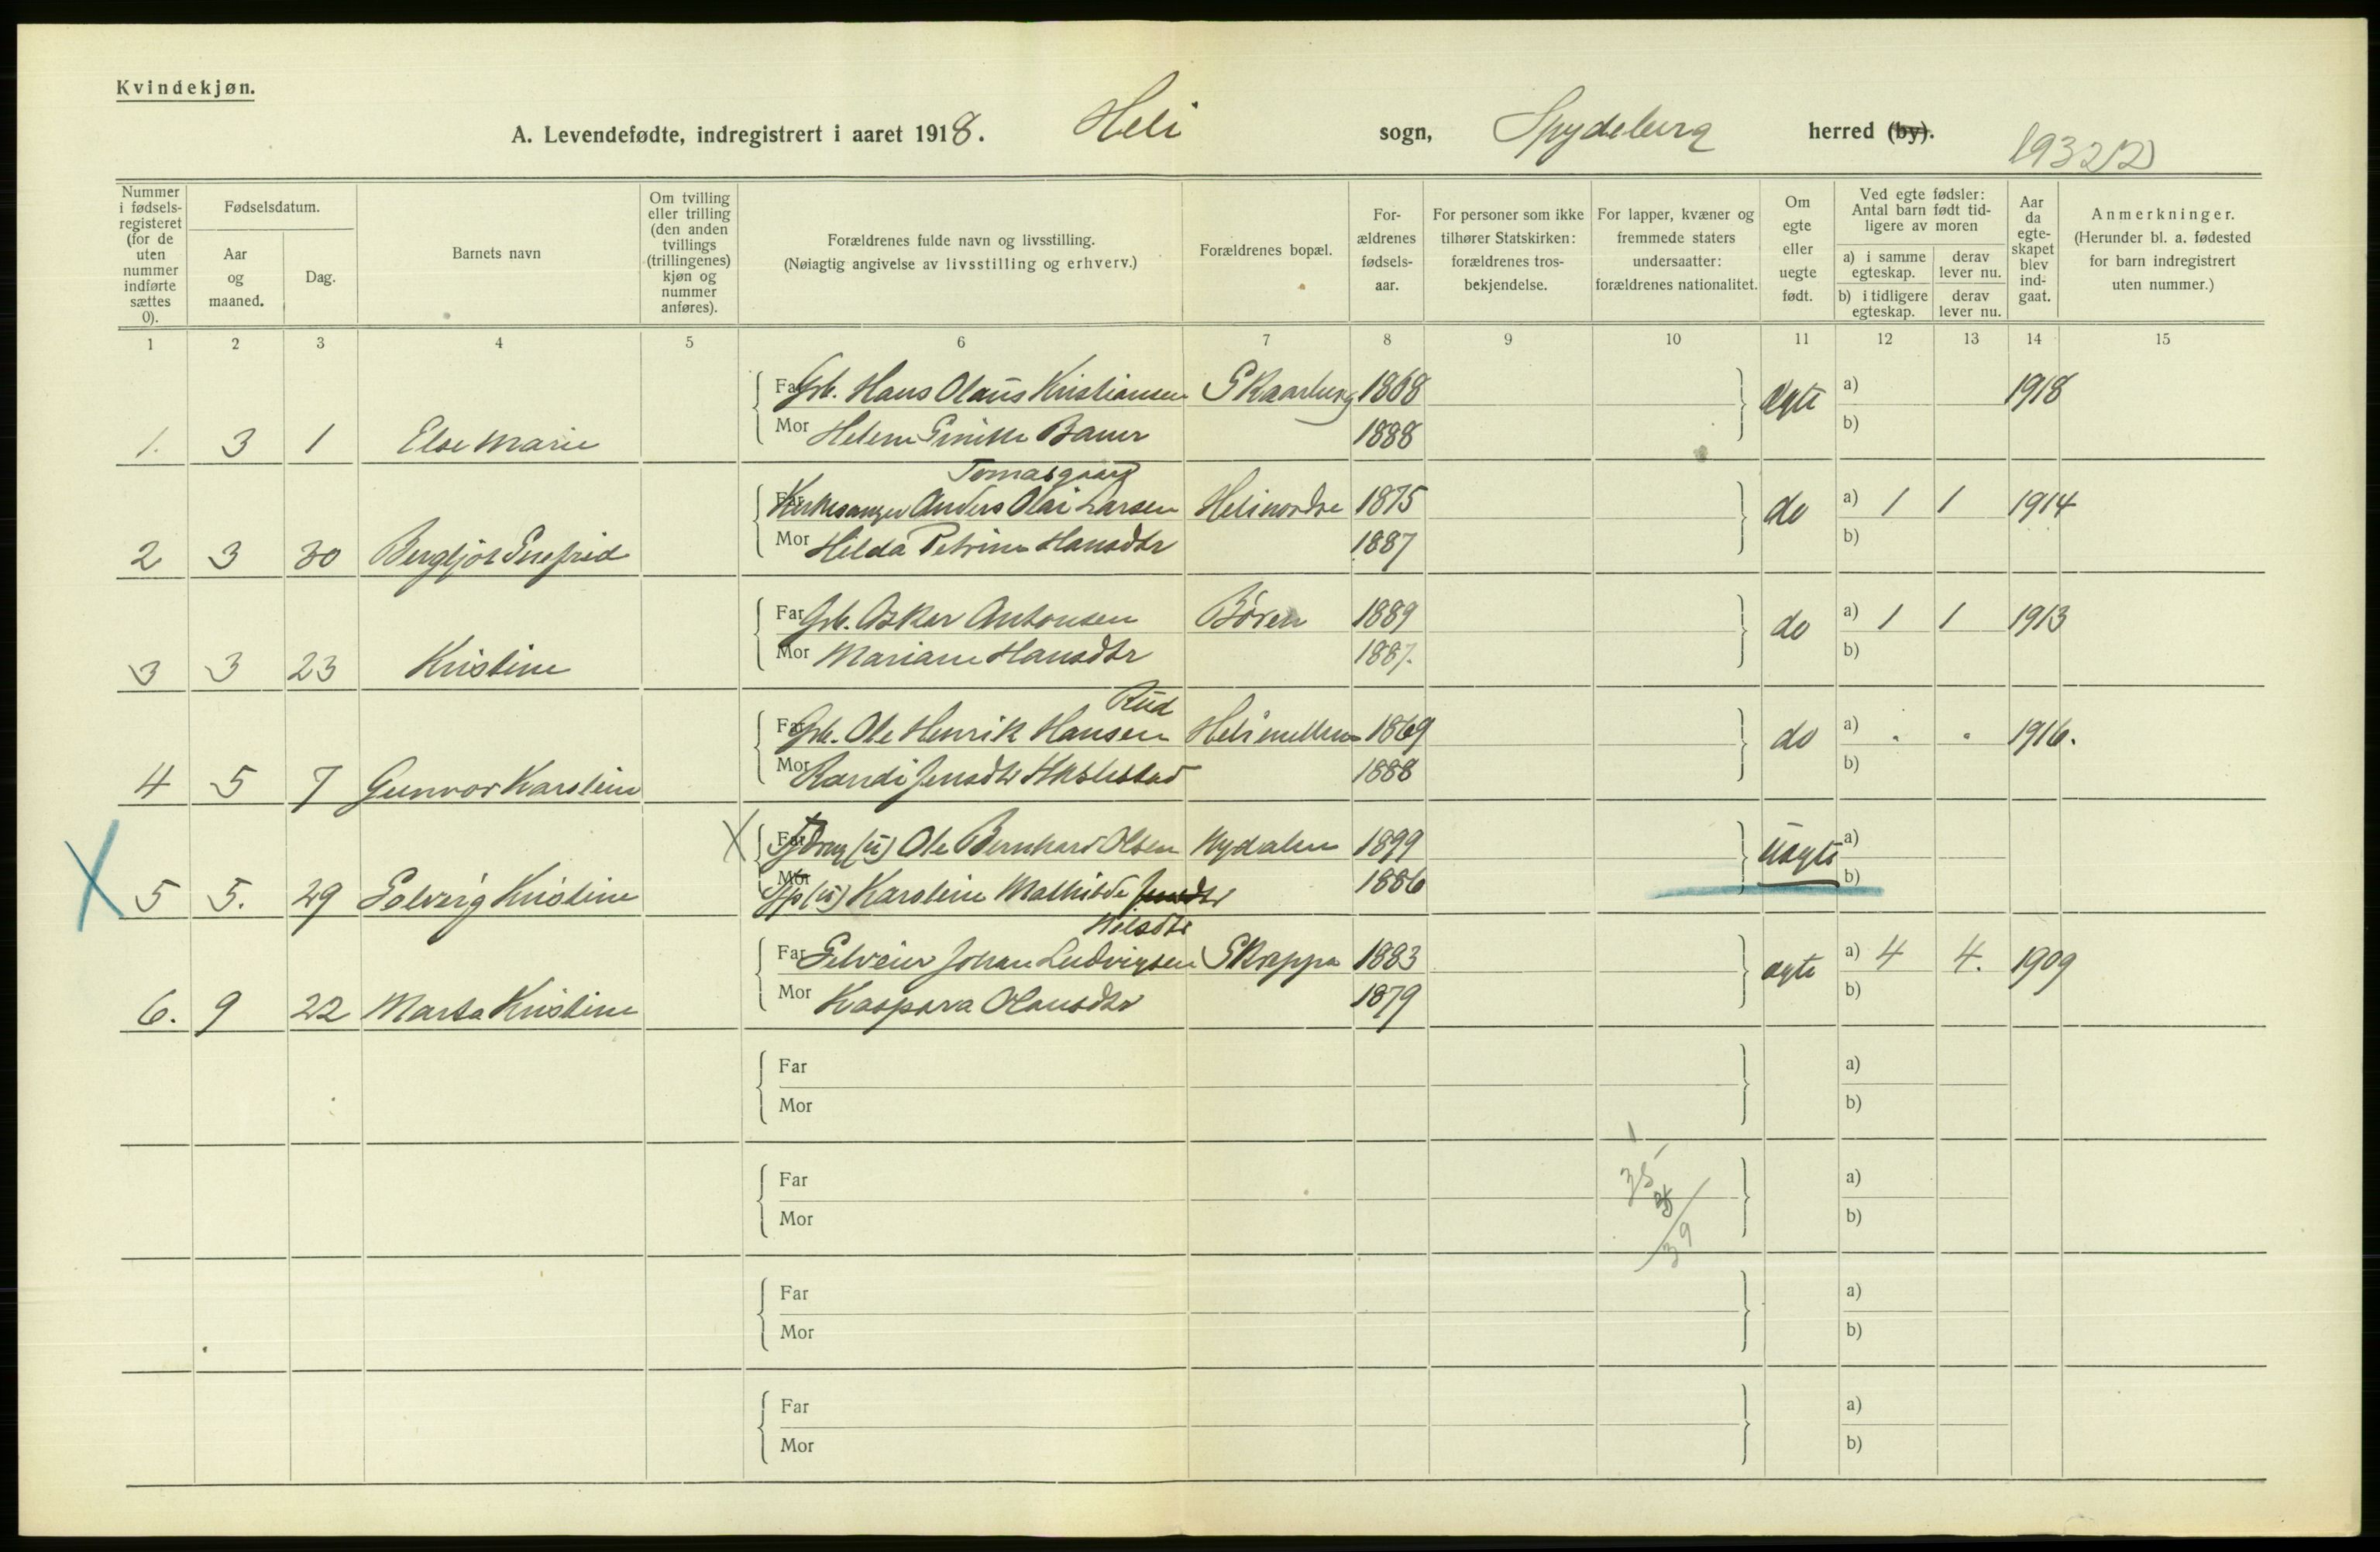 Kvindekjøn.
A. Levendefødte, indregistrert i aaret 1918. Heli sogn, Spydeberg herred (by).
19322
Nummer i fødsels-registeret (for de uten nummer indførte sættes 0).
Fødselsdatum.
Aar og maaned.
Dag.
Barnets navn
Om tvilling eller trilling (den anden tvillings (trillingenes) kjøn og nummer anføres).
Forældrenes fulde navn og livsstilling. (Nøiagtig angivelse av livsstilling og erhverv.)
Forældrenes bopæl.
For-ældrenes fødsels-aar.
For personer som ikke tilhører Statskirken: forældrenes tros-bekjendelse.
For lapper, kvæner og fremmede staters undersaatter: forældrenes nationalitet.
Om egte eller uegte født.
Ved egte fødsler: Antal barn født tid-ligere av moren
a) i samme egteskap. derav lever nu.
b) i tidligere egteskap. derav lever nu.
Aar da egte-skapet blev ind-gaat.
Anmerkninger. (Herunder bl. a. fødested for barn indregistrert uten nummer.)
1 2 3 4 5 6 7 8 9 10 11 12 13 14 15
Far Grb. Hans Olaus Kristiansen Skaarberg 1868 Ægte a) 1918
1. 3 1 Else Marie Mor Helene Bauer 1888 b)
Tomasgaard
Far Kirkesanger Anders Olai Larsen Heli nordre 1875 do a) 1 1 1914
2 3 30 Bergljot Mor Hilda Petrine Hansdtr 1887 b)
Far Grb. Oskar Antonsen Bören 1889 do a) 1 1 1913
3 3 23 Kristine Mor Mariane Hansdtr 1887. b)
Rud
Far Grb. Ole Henrik Hansen Heli mellem 1869 do a) . . 1916.
4 5 7 Gunvor Karoline Mor Randi Jensdtr 1888 b)
X Far (ü) Ole Bernhard Olsen Nydalen 1899 Uegte a)
X 5 5. 29 Solveig Kristine Mor (ü) Karoline Mathilde Jensdtr 1886 b)
Nilsdtr
Far Selveier Johan Ludvigsen Skreppa 1883 ægte a) 4 4. 1909
6. 9 22 Marta Kristine Mor Kaspara Olausdtr 1879 b)
Far a)
Mor b)
1
Far 35 a)
Mor b)
39
Far a)
Mor b)
Far a)
Mor b)